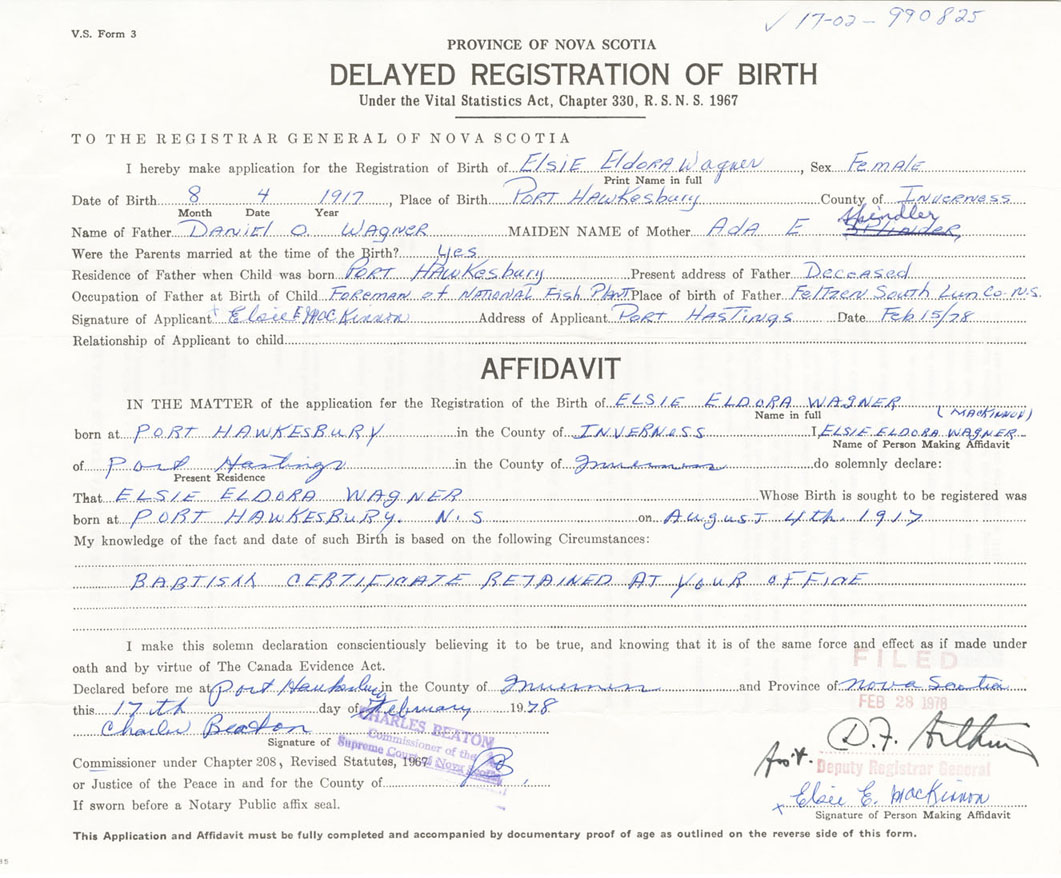 ✓ 17-02-990825
V.S. Form 3
PROVINCE OF NOVA SCOTIA
DELAYED REGISTRATION OF BIRTH
Under the Vital Statistics Act, Chapter 330, R.S.N.S. 1967
TO THE REGISTRAR GENERAL OF NOVA SCOTIA
I hereby make application for the Registration of Birth of Elsie Eldora Wagner, Sex Female
Print Name in full
Date of Birth 8 4 1917, Place of Birth Port Hawkesbury County of Inverness
Month Date Year
Spindler
Name of Father Daniel O. Wagner MAIDEN NAME of Mother Ada E
Were the Parents married at the time of the Birth? yes
Residence of Father when Child was born Port Hawkesbury Present address of Father Deceased
Occupation of Father at Birth of Child Foreman of National Fish Plant Place of birth of Father Feltzen South Lun Co. N.S.
Signature of Applicant x Elsie E MacKinnon Address of Applicant Port Hastings Date Feb 15/78
Relationship of Applicant to child
AFFIDAVIT
IN THE MATTER of the application for the Registration of the Birth of ELSIE ELDORA WAGNER
Name in full (MACKINNON)
born at PORT HAWKESBURY in the County of INVERNESS I ELSIE ELDORA WAGNER
Name of Person Making Affidavit
of Port Hastings in the County of Inverness do solemnly declare:
Present Residence
That ELSIE ELDORA WAGNER Whose Birth is sought to be registered was
born at PORT HAWKESBURY. N.S on August 4th. 1917
My knowledge of the fact and date of such Birth is based on the following Circumstances:
BABTISM CERTIFICATE RETAINED AT YOUR OFFICE
I make this solemn declaration conscientiously believing it to be true, and knowing that it is of the same force and effect as if made under
oath and by virtue of The Canada Evidence Act.
FILED
Declared before me at Port Hawkesbury in the County of Inverness and Province of Nova Scotia
FEB 28 1978
this 17th day of February 1978
Charles Beaton
CHARLES BEATON
Commissioner of the
Supreme Court of Nova Scotia
Signature of
D.F. Arthur
Asst.
Commissioner under Chapter 208, Revised Statutes, 1967
Deputy Registrar General
or Justice of the Peace in and for the County of
x Elsie E. MacKinnon
If sworn before a Notary Public affix seal.
Signature of Person Making Affidavit
This Application and Affidavit must be fully completed and accompanied by documentary proof of age as outlined on the reverse side of this form.